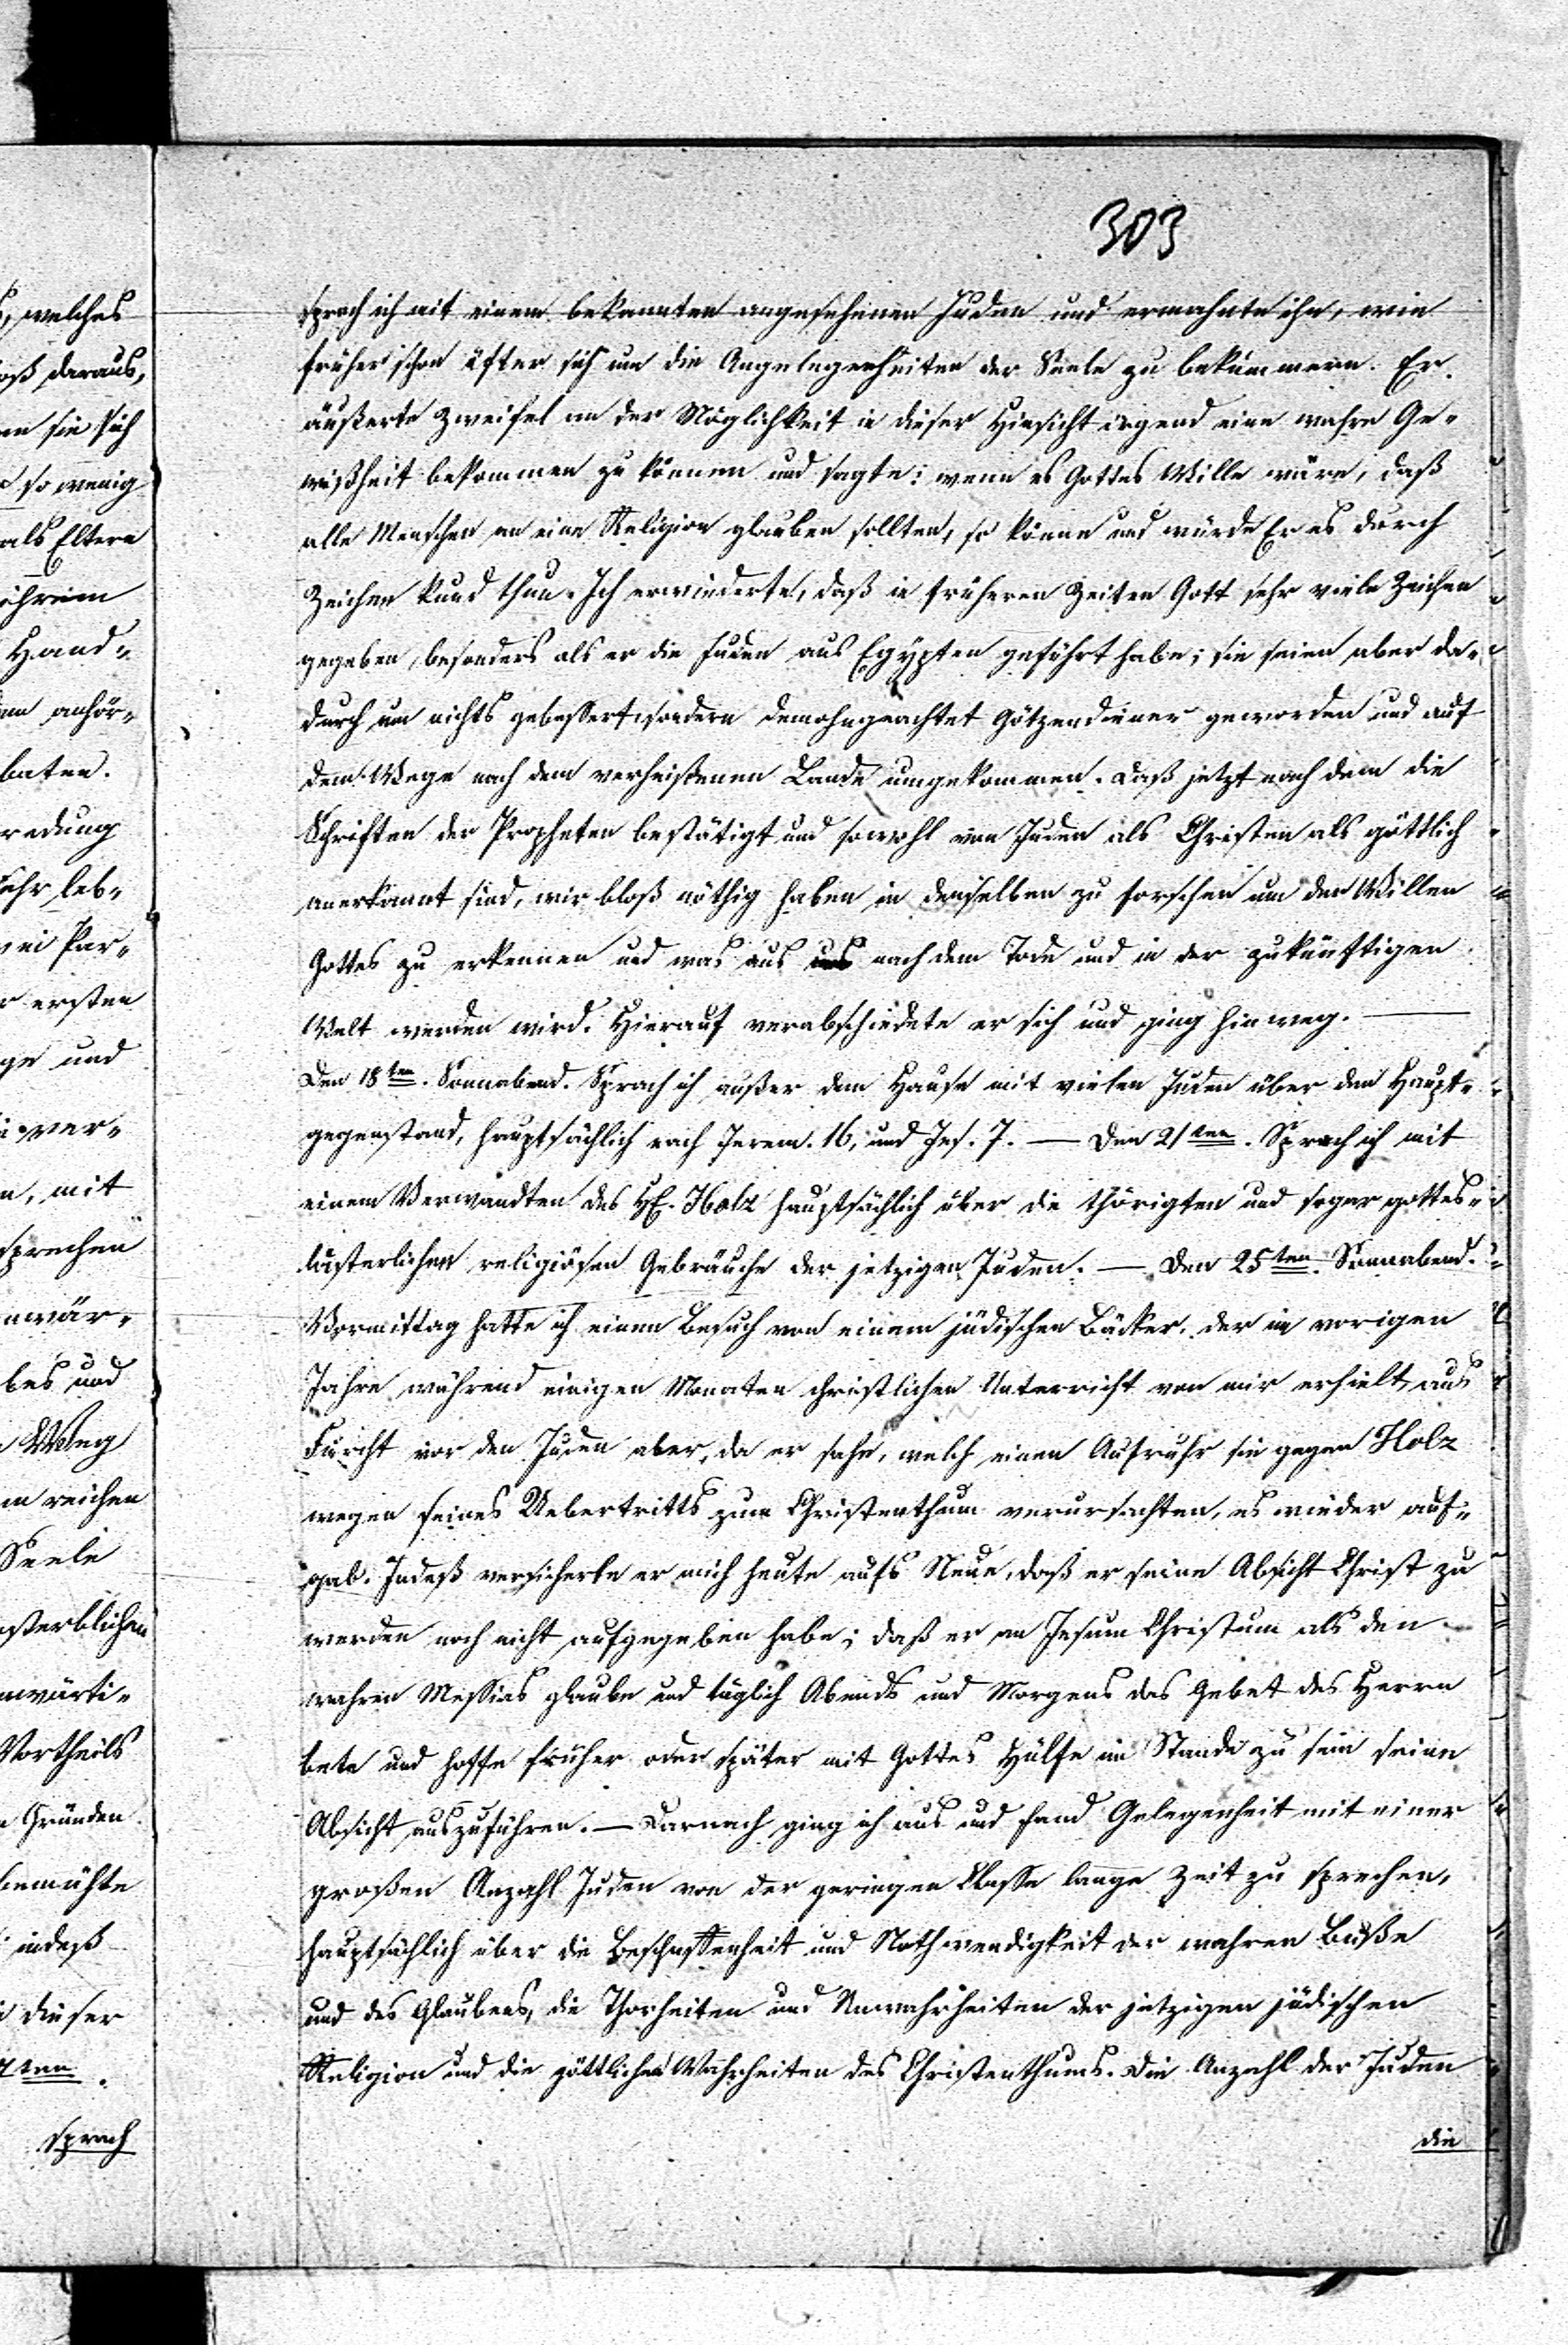 303
sprach ich mit einem bekannten angesehenen Juden und ermahnte ihn, wie
früher schon öfter sich um die Angelegenheiten der Seele zu bekümmern. Er
äußerte Zweifel an der Möglichkeit in dieser Hinsicht irgend eine wahre Ge-
wißheit bekommen zu können und sagte: wenn es Gottes Wille wäre, daß
alle Menschen an eine Religion glauben sollten, so könne und würde Er es durch
Zeichen kund thun. Ich erwiederte, daß in früheren Zeiten Gott sehr viele Zeichen
gegeben, besonders als er die Juden aus Egypten geführt habe; sie seien aber da-
durch um nichts gebessert, sondern demohngeachtet Götzendiener geworden und auf
dem Wege nach dem verheißenen Lande umgekommen. Daß jetzt nach dem die
Schriften der Propheten bestätigt und sowohl von Juden als Christen als göttlich
anerkannt sind, wir bloß nöthig haben in denselben zu forschen um den Willen
Gottes zu erkennen und was aus uns nach dem Tode und in der zukünftigen
Welt werden wird. Hierauf verabschiedete er sich und ging hinweg. —
Den 18ten. Sonnabend. Sprach ich außer dem Hause mit vielen Juden über den Haupt-
gegenstand, hauptsächlich nach Jerem. 16, und Jes. 7. — Den 21ten. Sprach ich mit
einem Verwandten des H. Holz hauptsächlich über die thörigten und sogar gottes-
lästerlichen religiösen Gebräuche der jetzigen Juden. — Den 25ten. Sonnabend.
Vormittag hatte ich einen Besuch von einem jüdischen Bäcker, der im vorigen
Jahre während einigen Monaten christlichen Unterricht von mir erhielt, aus
Furcht vor den Juden aber, da er sahe, welch einen Aufruhr sie gegen Holz
wegen seines Uebertritts zum Christenthum verursachten, es wieder auf-
gab. Indeß versicherte er mich heute aufs Neue, daß er seine Absicht Christ zu
werden noch nicht aufgegeben habe; daß er an Jesum Christum als den
wahren Messias glaube und täglich Abends und Morgens das Gebet des Herrn
bete und hoffe früher oder später mit Gottes Hülfe im Stande zu sein seine
Absicht auszuführen. — Darnach ging ich aus und fand Gelegenheit mit einer
großen Anzahl Juden von der geringen Classe lange Zeit zu sprechen,
hauptsächlich über die Beschaffenheit und Nothwendigkeit der wahren Buße
und des Glaubens, die Thorheiten und Unwahrheiten der jetzigen jüdischen
Religion und die göttlichen Wahrheiten des Christenthums. Die Anzahl der Juden
die
welches
daraus,
sie sich
so wenig
als Eltern
Hand-
anhör-
baten.
redung
leb-
Par-
ersten
und
ver-
mit
sprechen
wär-
und
Weg
reichen
Seele
sterblichen
wärti-
Vortheils
Gründen
bemühte
indeß
dieser
ten.
sprach